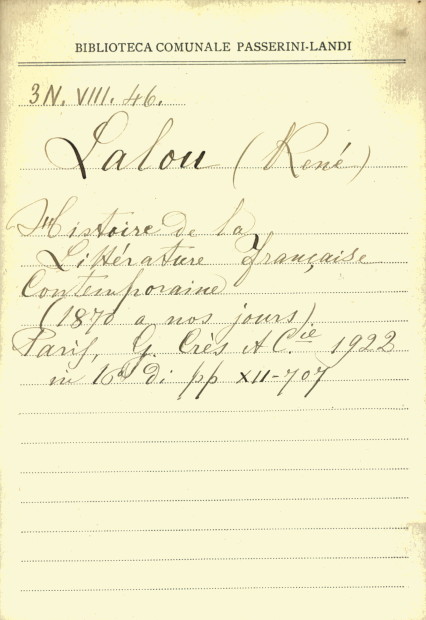 BIBLIOTECA COMUNALE PASSERINI-LANDI
3 N. VIII. 46.
Lalou (René)
Histoire de la
Littérature française
Contemporaine
(1870 a nos jours)
Paris, G. Crès & C.ie 1922
in 16° di pp XII-707